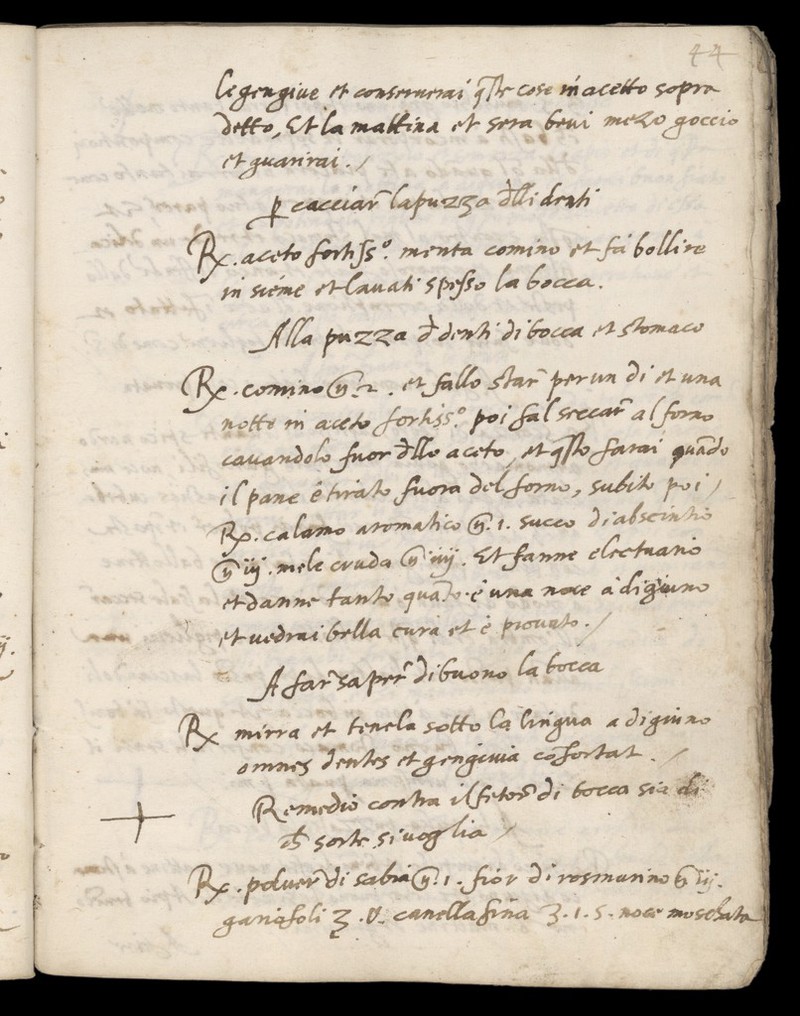 44
le gengive et conserverai q̃ste cose in acetto sopra
detto, Et la mattina et sera bevi mezo goccio
et guarirai ./
p̱ cacciar̃ la puzza d̃lli denti
Rx. aceto fortiss.º menta comino et fa bollire
in sieme et lavati spesso la bocca.
Alla puzza d̃ denti di bocca et stomaco
Rx. comino ℥ 2. et fallo star̃ per un di et una
notte in aceto fortiss.º poi fal seccar̃ al forno
cavandolo fuor d̃llo aceto, et q̃sto farai quãdo
il pane è tirato fuora del forno, subito poi /
Rx. calamo aromatico ℥. 1. succo di abscintio
℥ iij. mele cruda ℥ iiij. Et fanne electuario
et danne tanto quãto è una noce à digiuno
et vedrai bella cura et è provato ./
A far̃ saper̃ di buono la bocca
Rx mirra et tenela sotto la lingua a digiuno
omnes dentes et gengivia cõfortat ./
Remedio contra il fetor̃ di bocca sia di
ch̃ sorte si voglia /
Rx. polver̃ di salvia ℥. 1. fior di rosmarino ℥ iij.
gariofoli ʒ. v. canella fina ʒ. 1. s. noce moschata